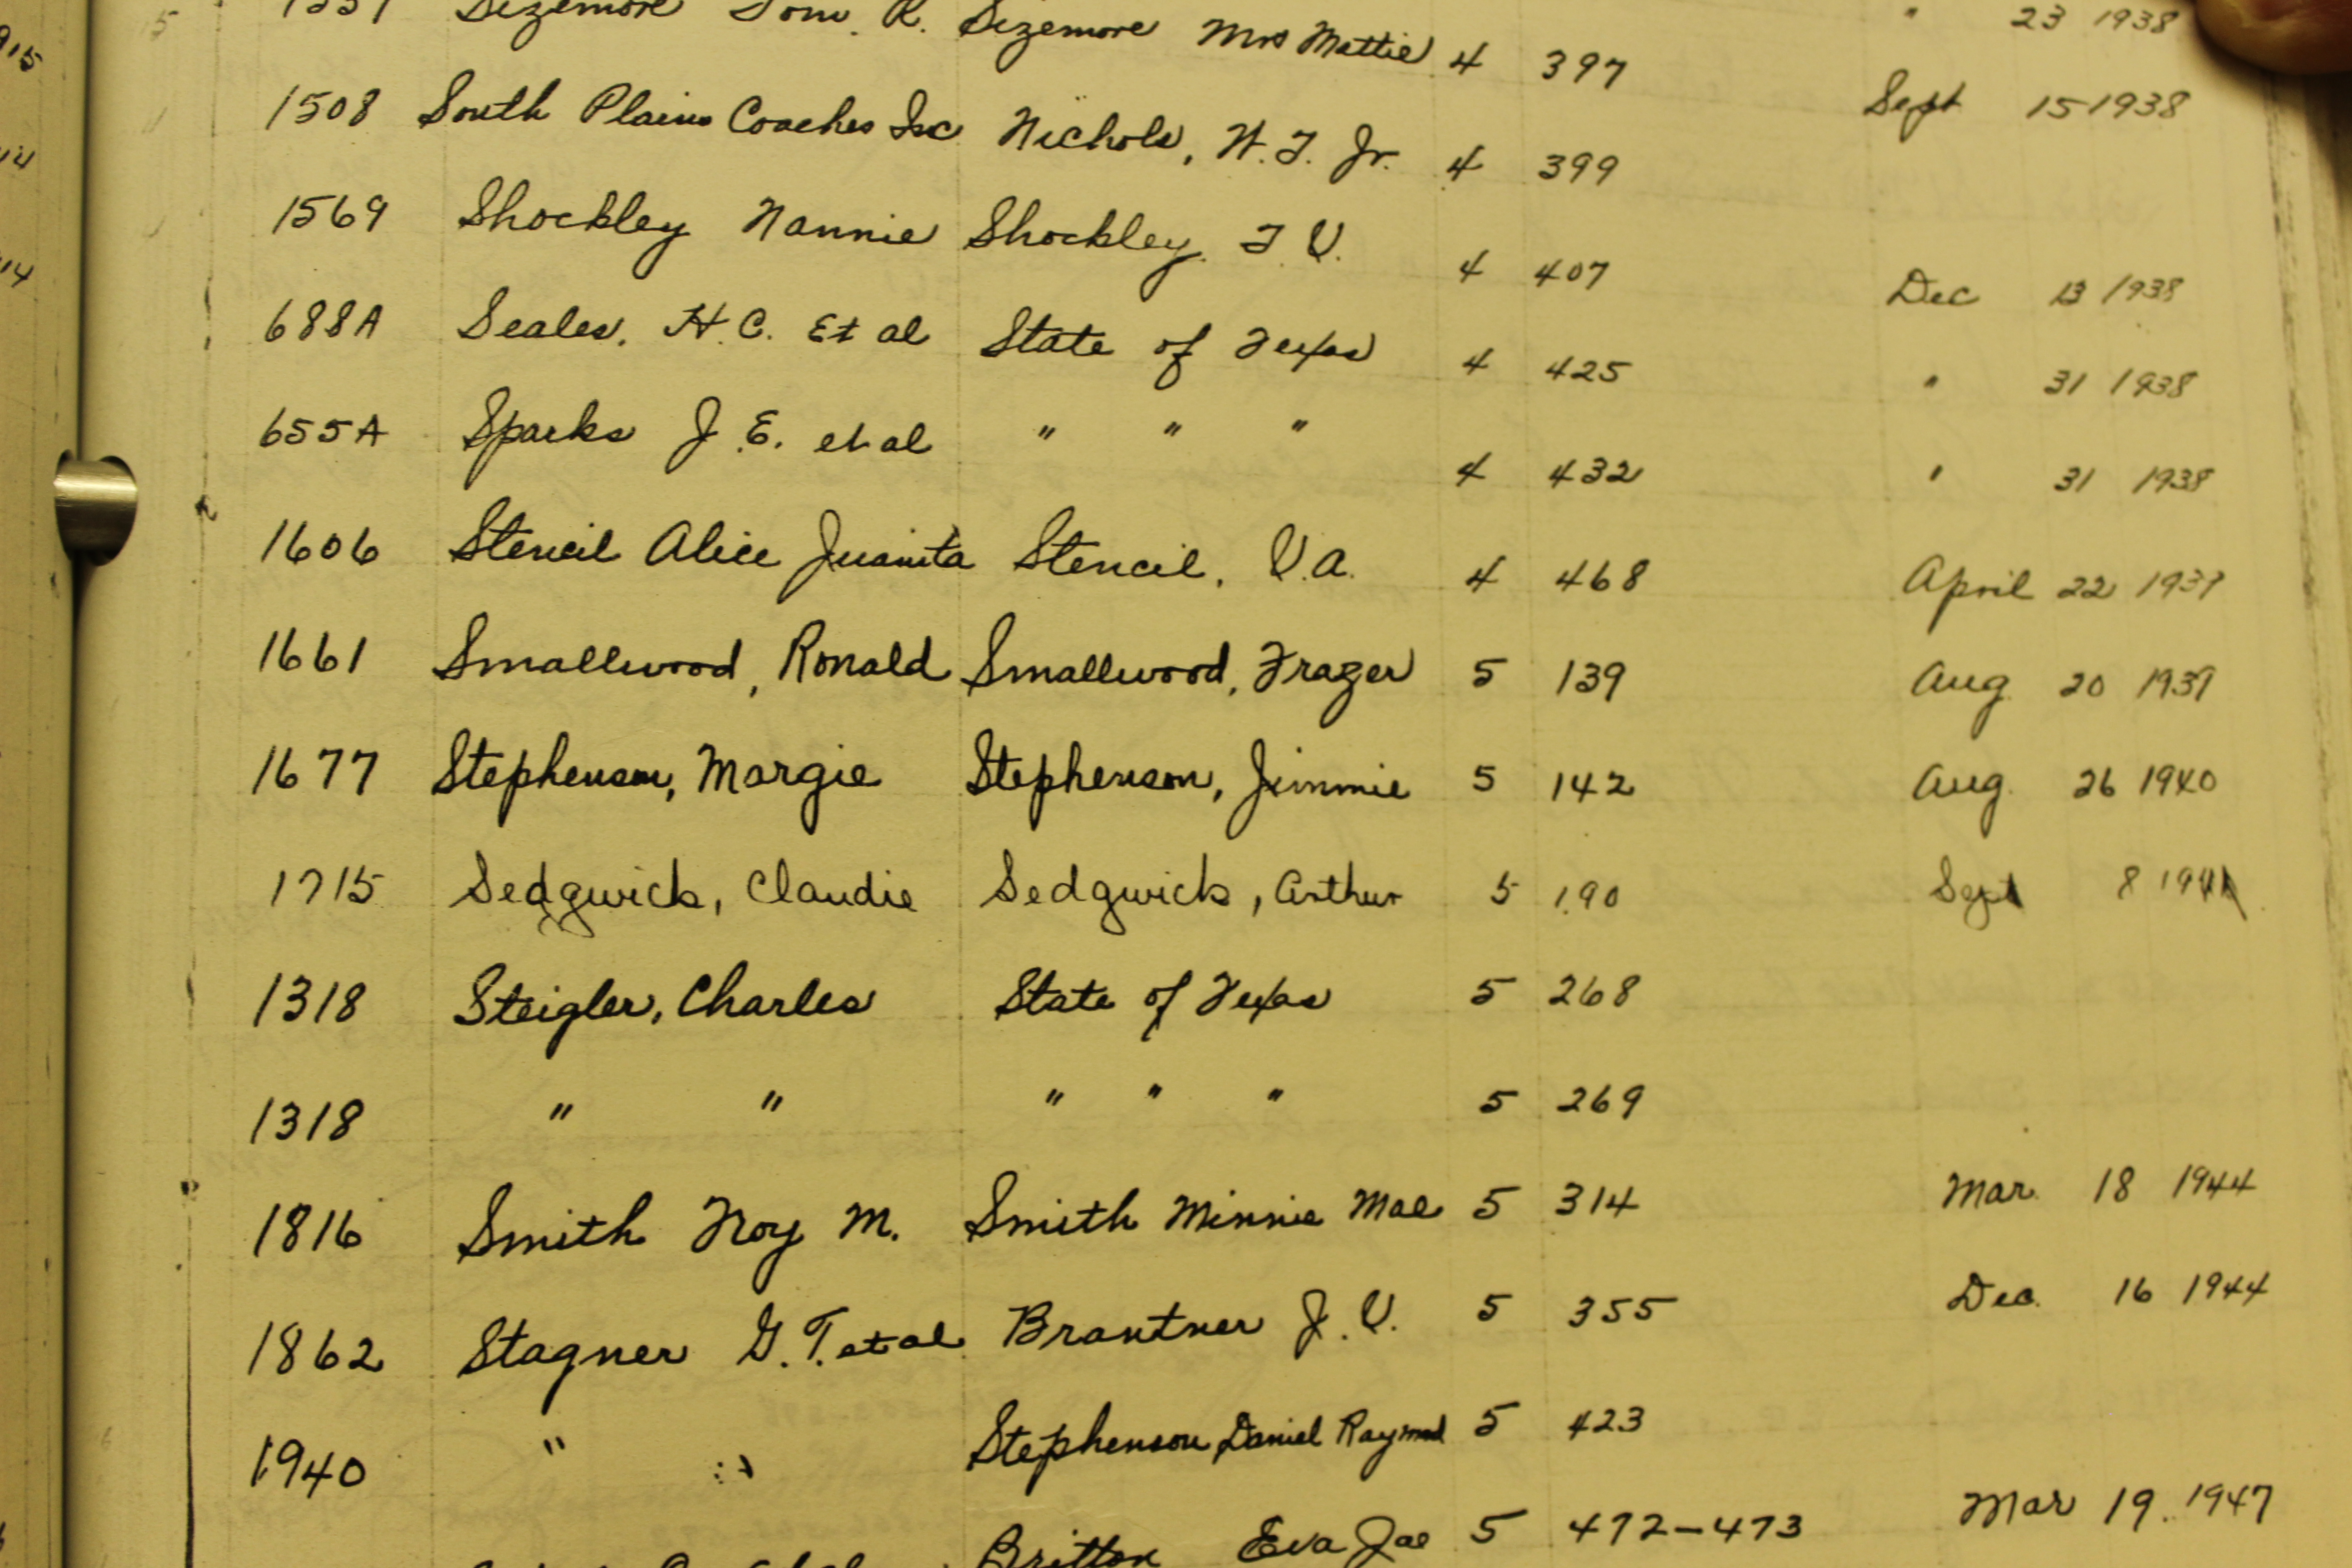 " 23 1938
Sizemore Tom. R. Sizemore Mrs Mattie 4 397 Sept 15 1938
1508 South Plains Coaches Inc Nichols, W. T. Jr. 4 399
1569 Shockley Nannie Shockley. T. V. 4 407 Dec 13 1938
688A Seales, H. C. Et al State of Texas 4 425 " 31 1938
655A Sparks J. E. et al " " " 4 432 " 31 1938
1606 Stencil Alice Juanita Stencil, V. A. 4 468 April 22 1939
1661 Smallwood, Ronald Smallwood, Frazer 5 139 Aug 20 1939
1677 Stephenson, Margie Stephenson, Jimmie 5 142 Aug. 26 1940
1715 Sedgwick, Claudie Sedgwick, Arthur 5 190 Sept 8 1941
1318 Steigler, Charles State of Texas 5 268
1318 " " " " " 5 269
1816 Smith Troy M. Smith Minnie Mae 5 314 Mar. 18 1944
1862 Stagner G. T. et al Brantner J. V. 5 355 Dec. 16 1944
1940 " " Stephenson, Daniel Raymond 5 423
Britton Eva Jae 5 472-473 Mar 19. 1947